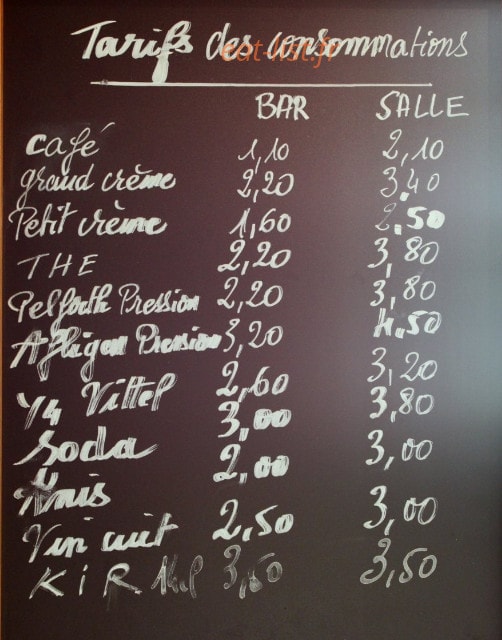 Tarifs des consommations
eat-list.fr
BAR SALLE
Café 1,10 2,10
grand crème 2,20 3,40
Petit crème 1,60 2,50
THE 2,20 3,80
Pelforth Pression 2,20 3,80
Afligem Pression 3,20 4,50
1/4 Vittel 2,60 3,20
Soda 3,00 3,80
Anis 2,00 3,00
Vin cuit 2,50 3,00
KiR 3,50 3,50